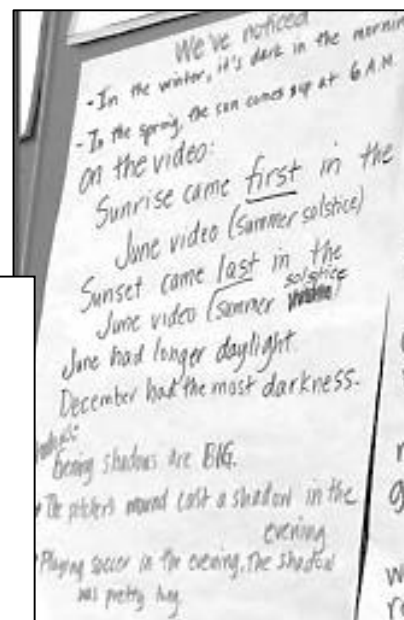 We've noticed
- In the winter, it's dark in the mornin
- In the spring, the sun comes up at 6 A.M.
on the video:
Sunrise came first in the
June video (summer solstice)
Sunset came last in the
solstice
June video (summer
June had longer daylight.
December had the most darkness.
Evening shadows are BIG.
• The pitchers mound cast a shadow in the
evening
• Playing soccer in the evening, the shadow
was pretty